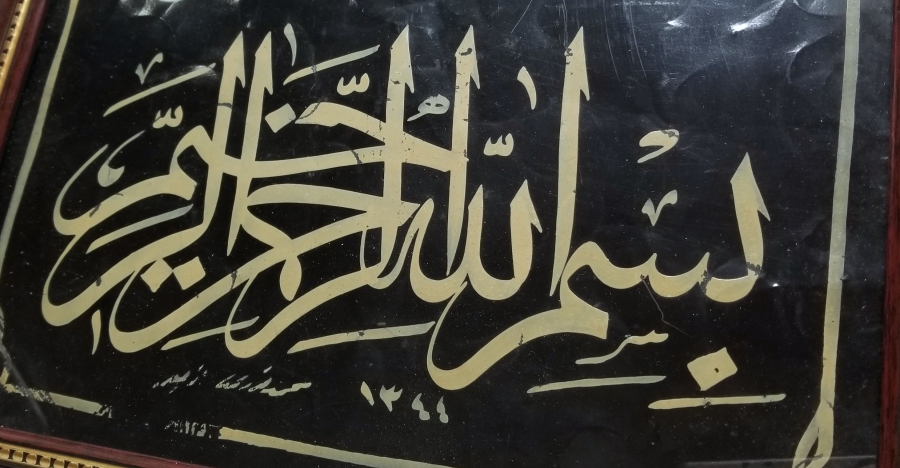 بِسْمِ اللّٰهِ الرَّحْمٰنِ الرَّحِيْمِ
١٣٤٤